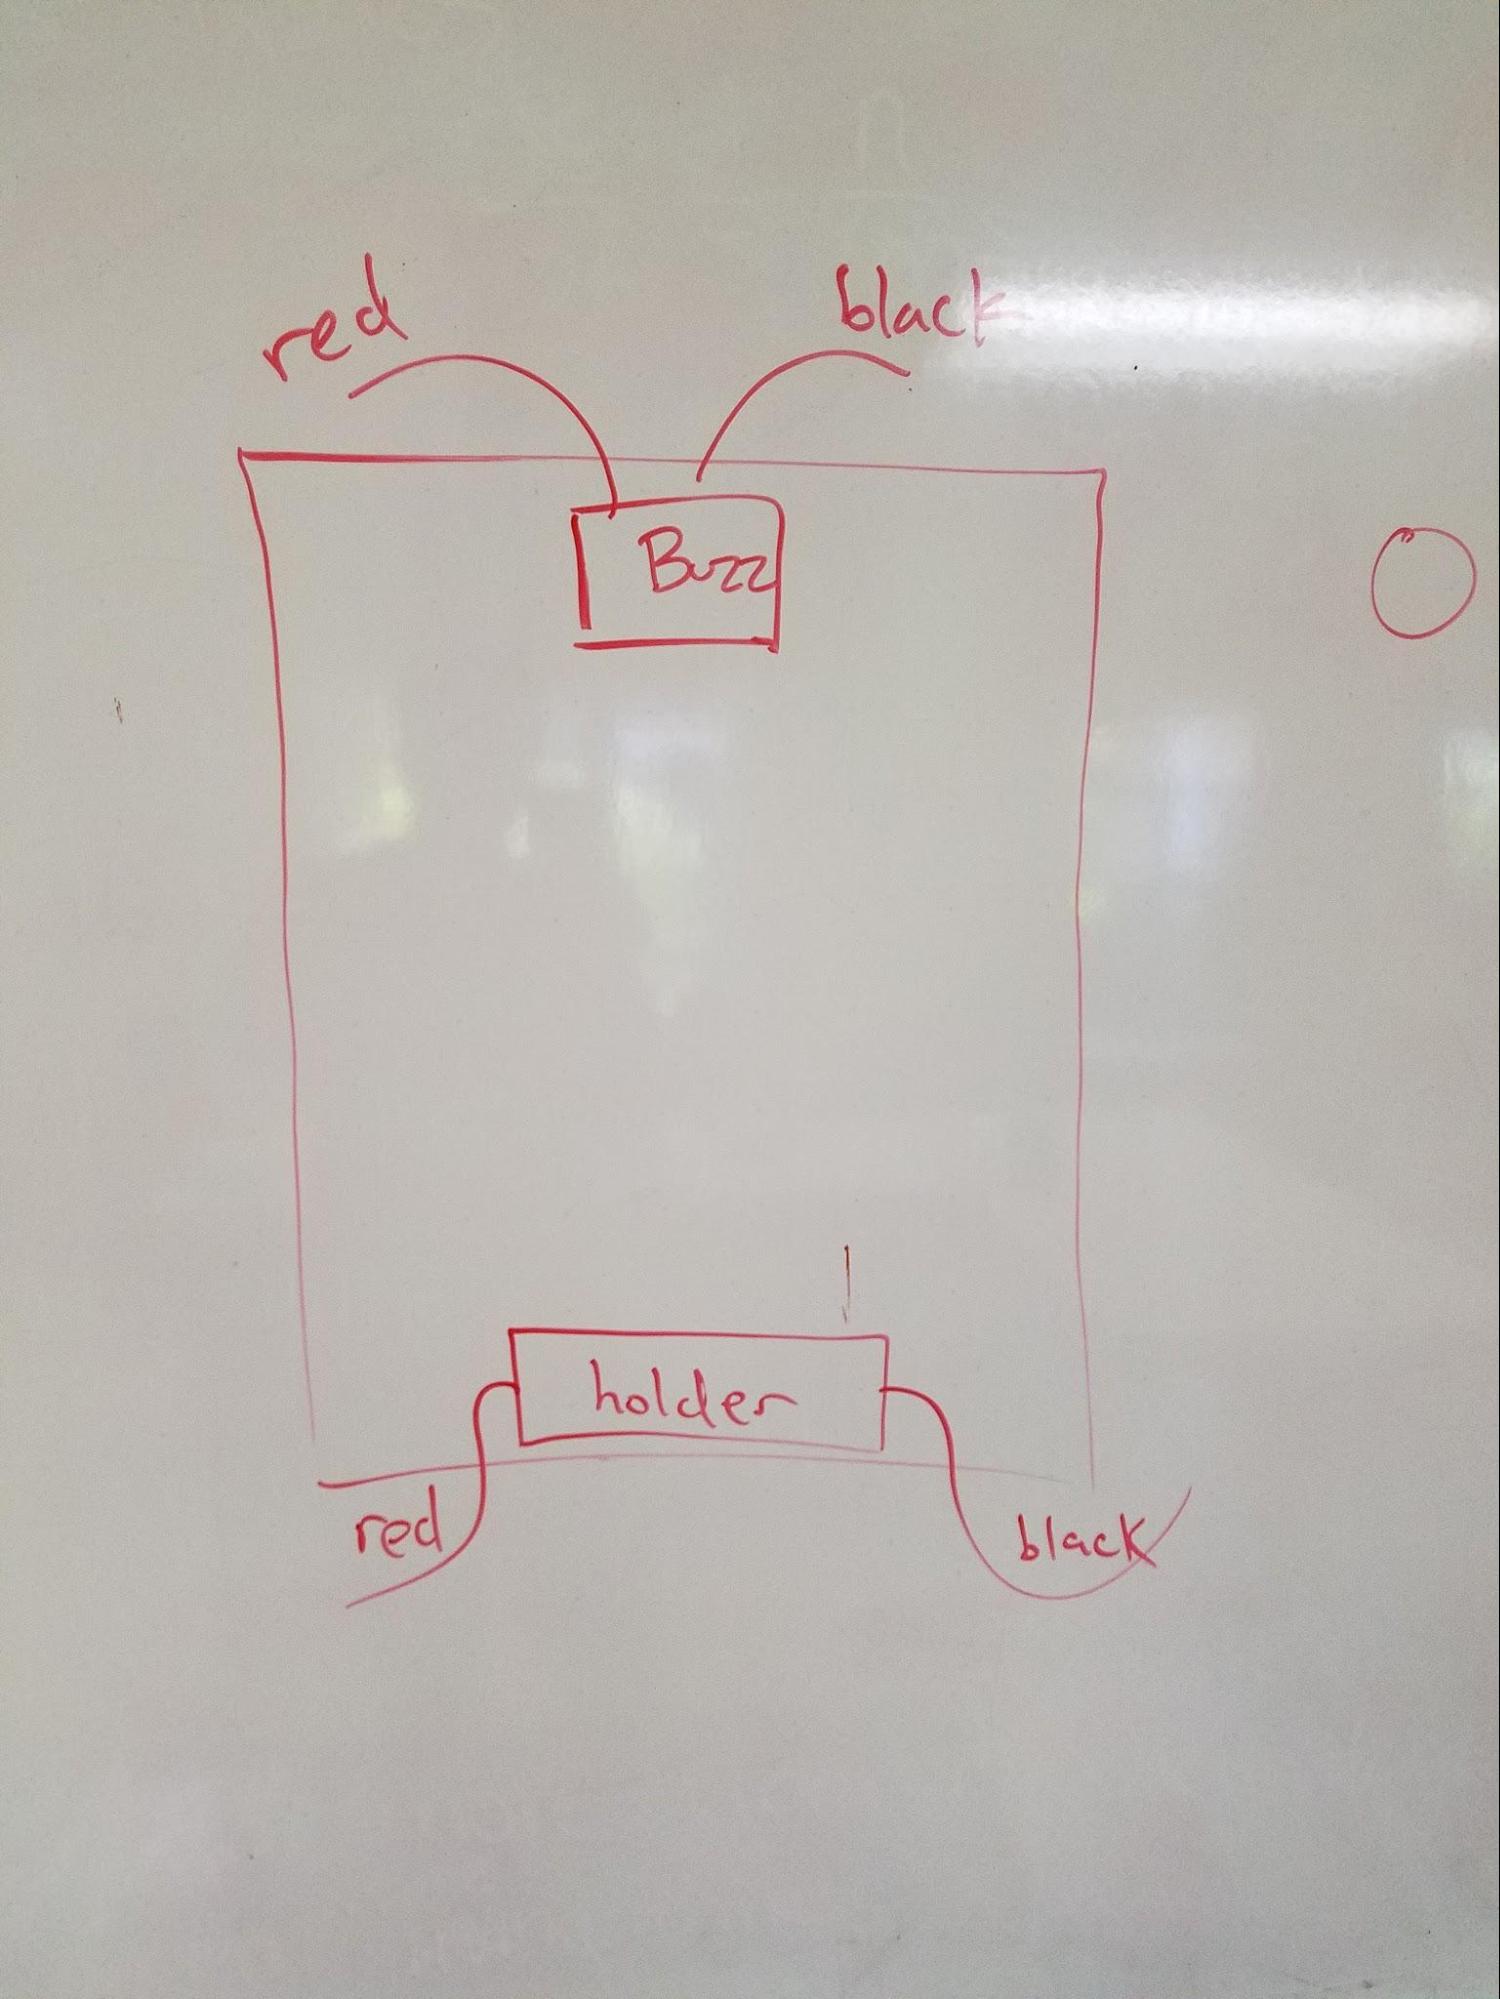 red
black
Buzz
holder
red
black